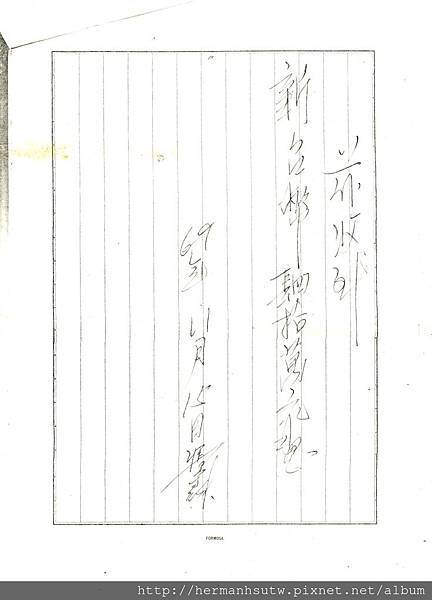 茲收到
新台幣肆拾萬元整
69年11月12日
FORMOSA
http://hermanhsutw.pixnet.net/album